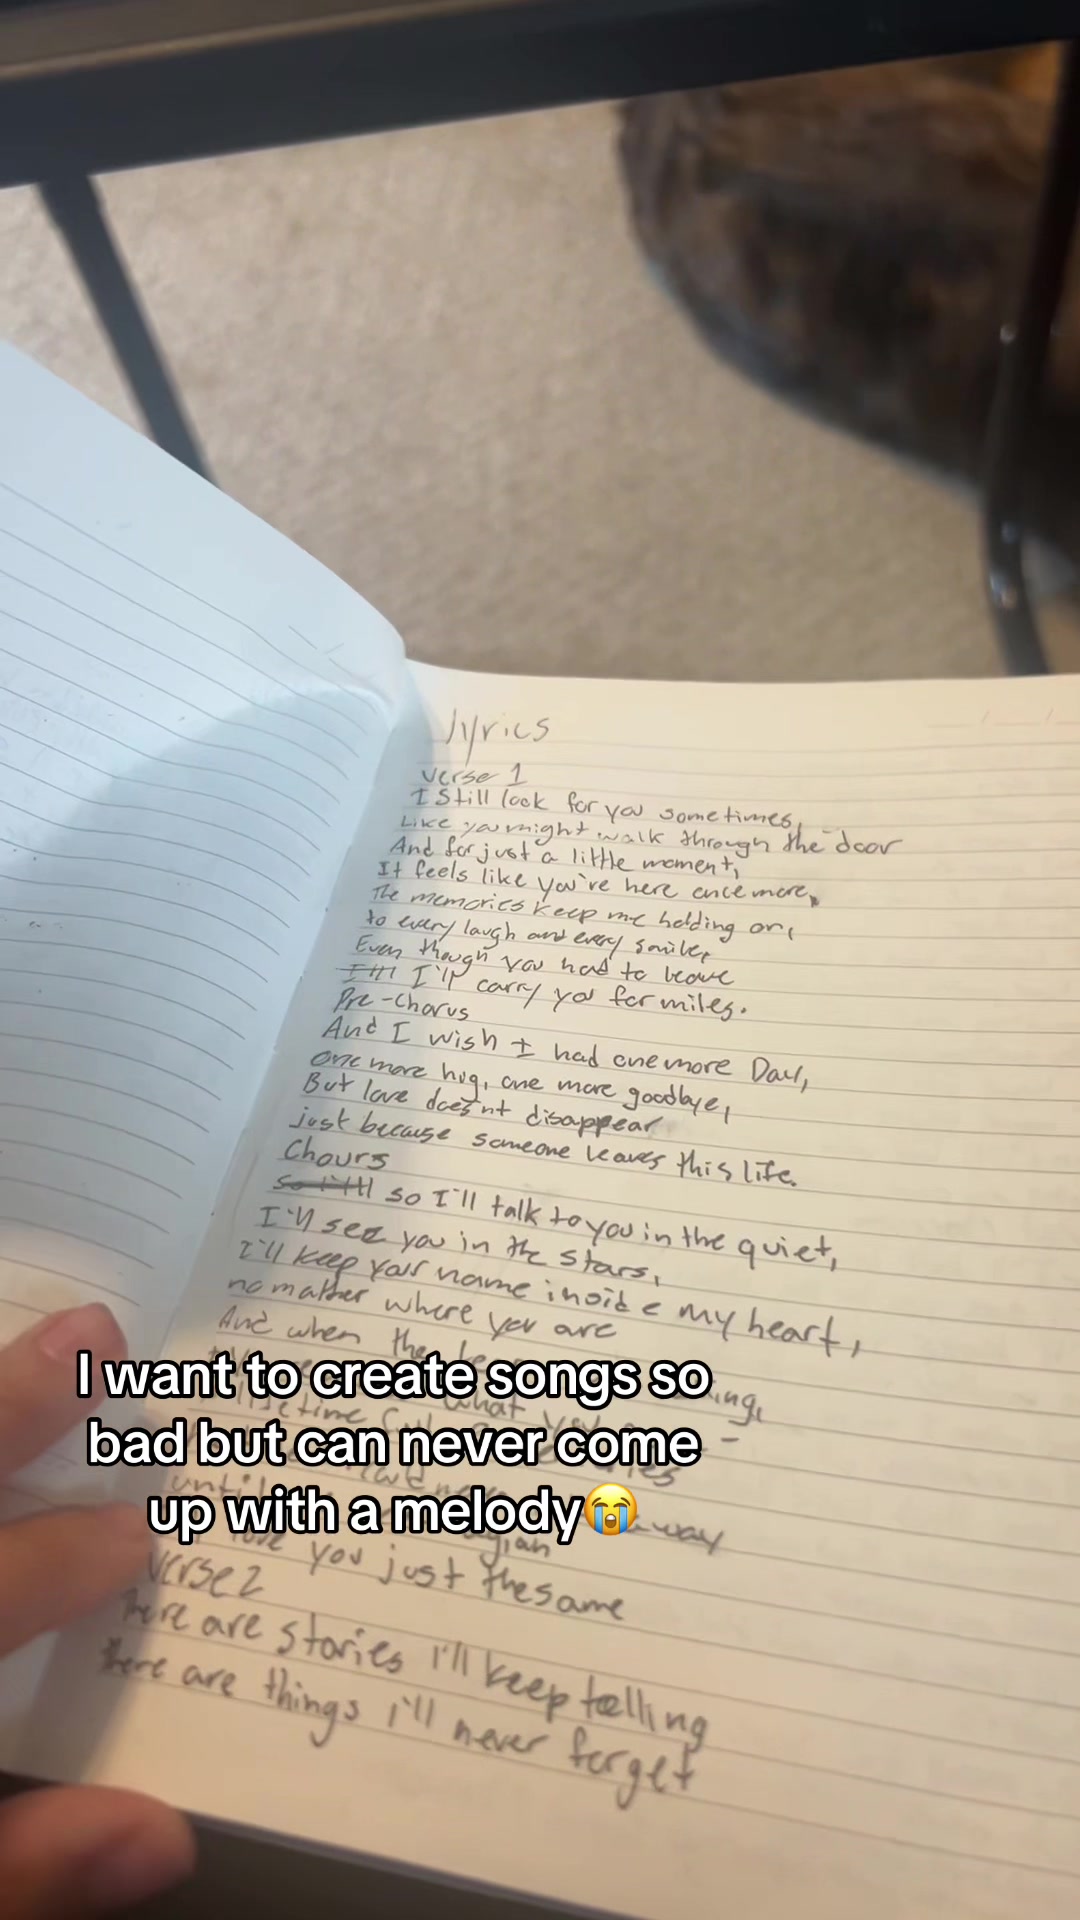 lyrics
Verse 1
I Still look for you sometimes,
Like you might walk through the door
And for just a little moment,
It feels like you're here once more,
The memories keep me holding on,
to every laugh and every smile,
Even though you had to leave
I'll I'll carry you for miles.
Pre-Chorus
And I wish I had one more Day,
one more hug, one more goodbye,
But love does'nt disappear
just because someone leaves this life.
Chours
so I'll so I'll talk to you in the quiet,
I'll see you in the stars,
I'll keep your name inside my heart,
no matter where you are
And when the
I want to create songs so
bad but can never come
up with a melody😭
what
until
away
you just thesame
Verse 2
There are stories I'll keep telling
there are things i'll never forget